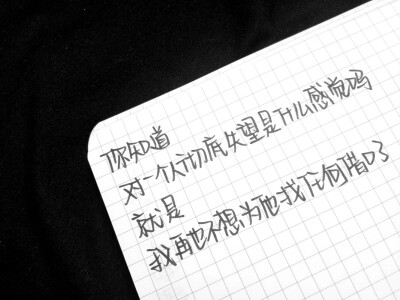 你知道
对一个人彻底失望是什么感觉吗
就是
我再也不想为他找任何借口了